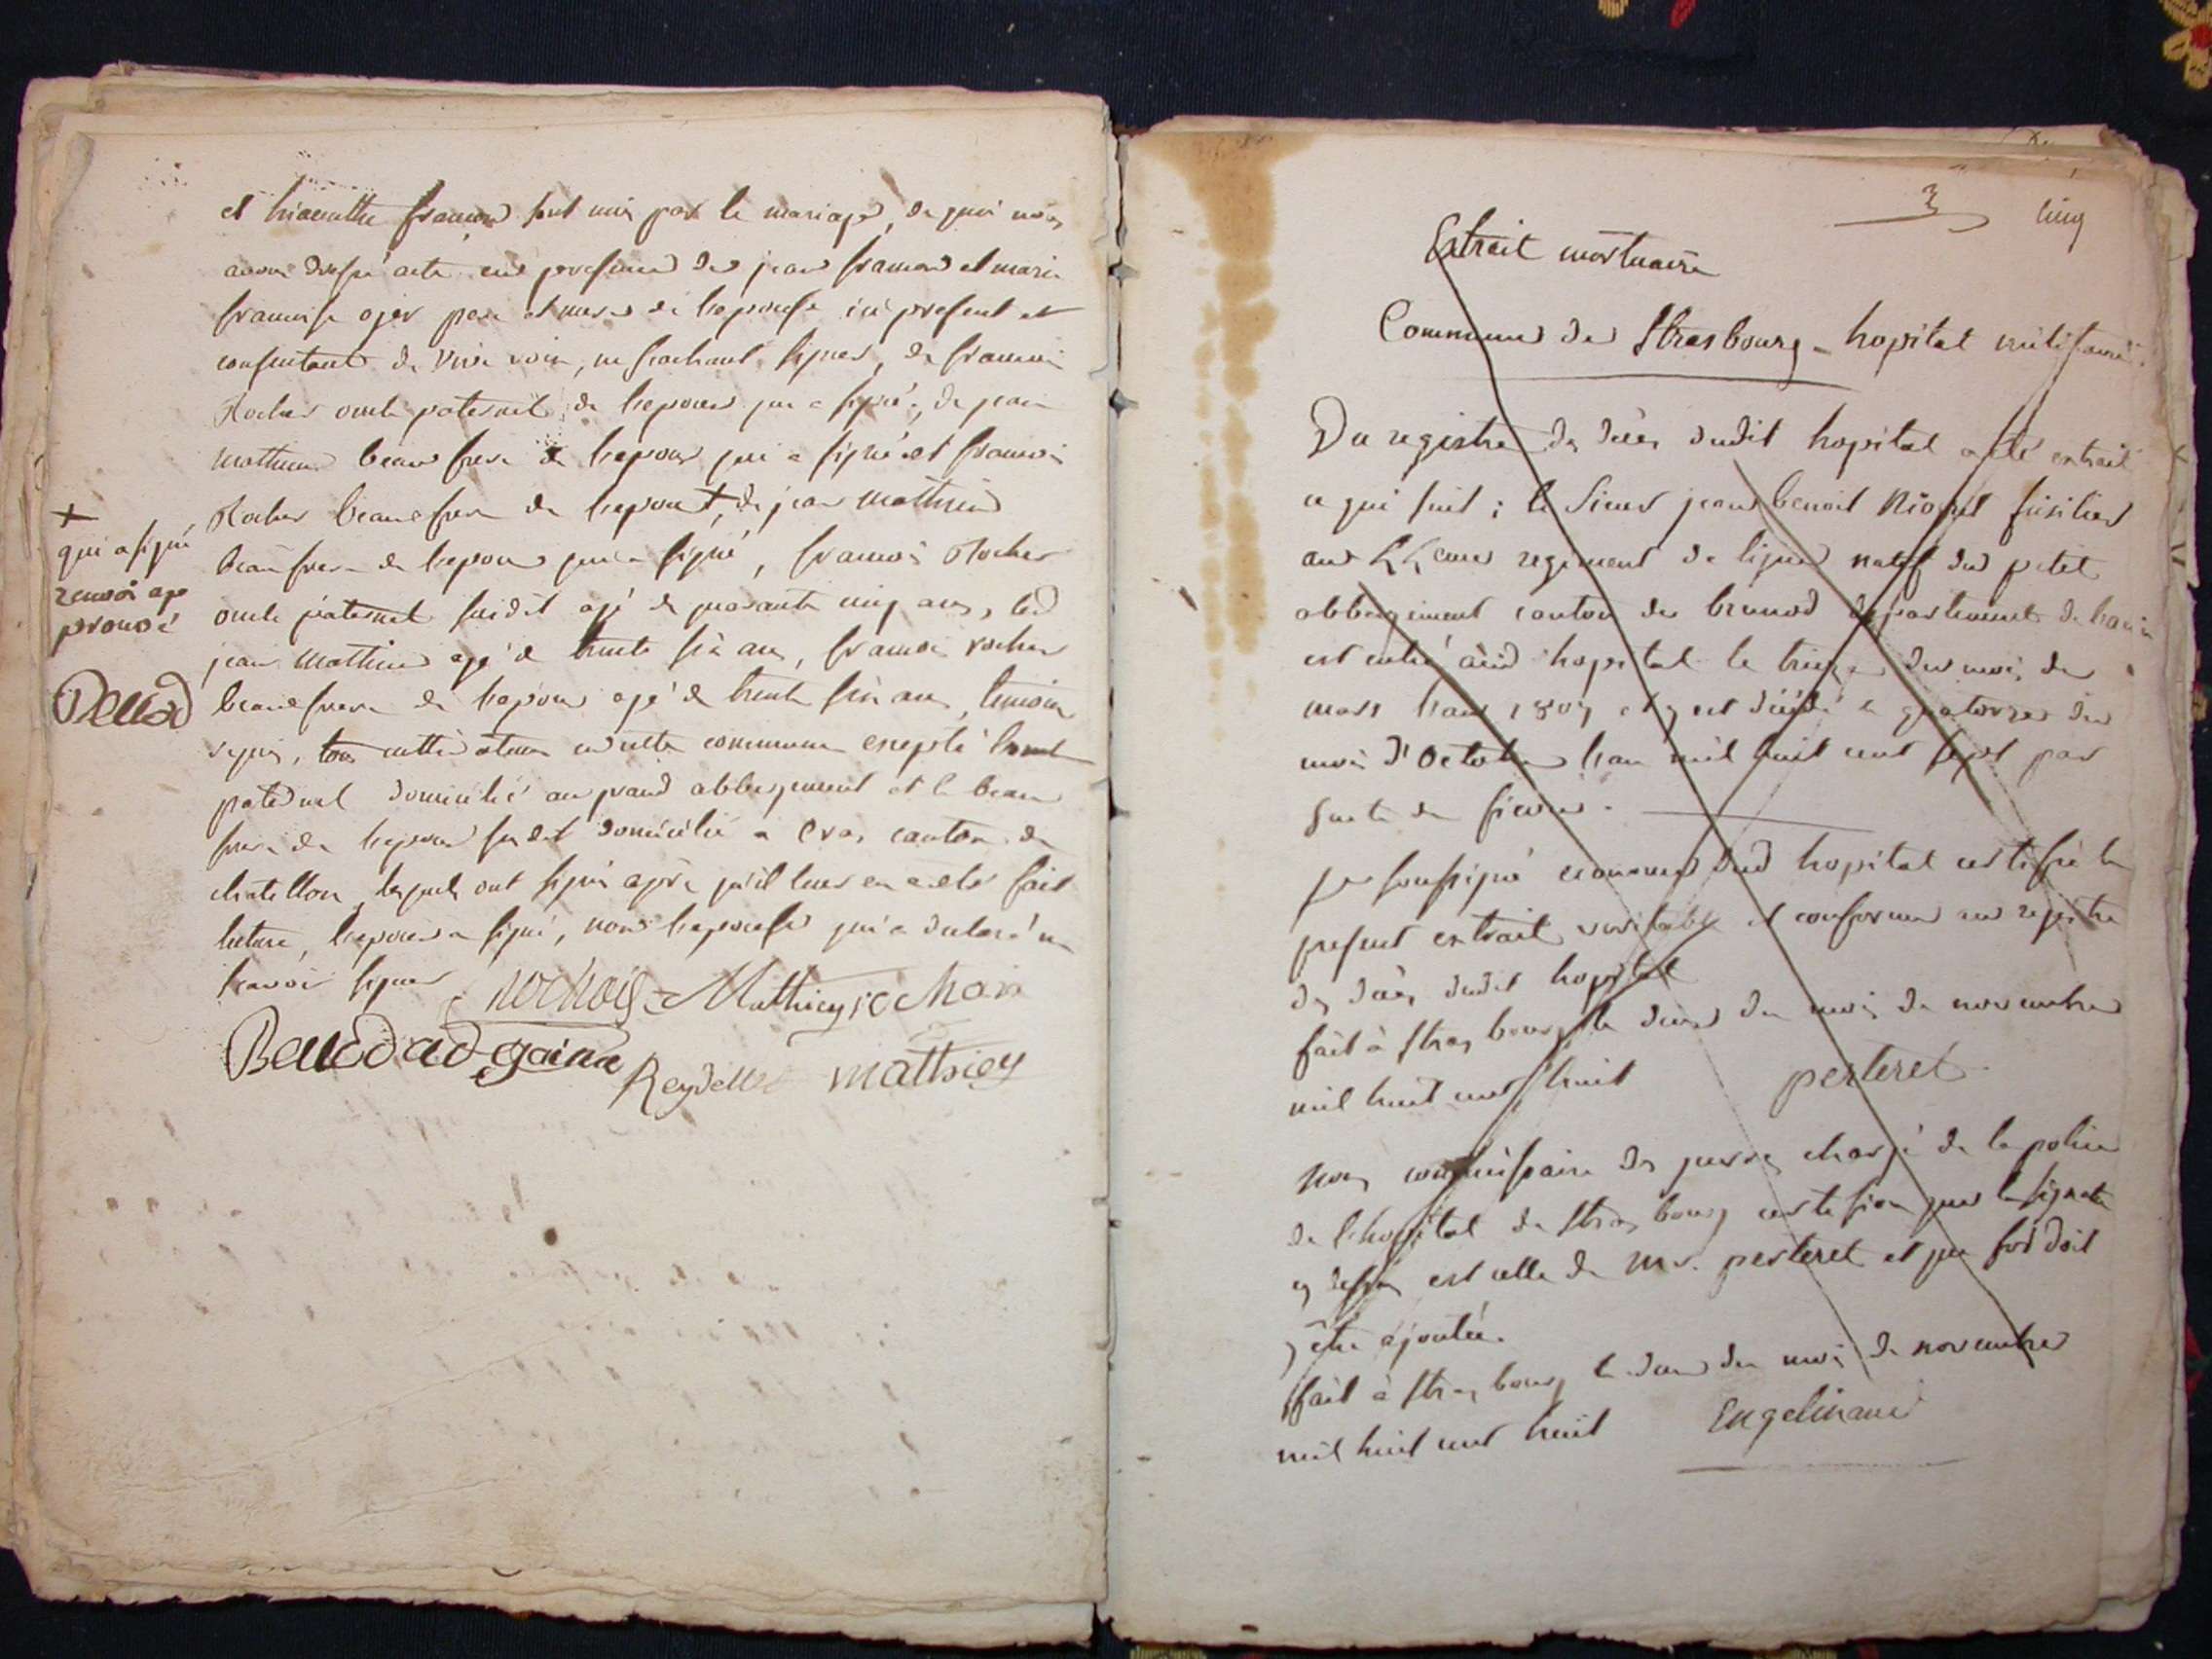 et hiacinthe framon sont unis par le mariage, de quoi nous
avons dressé acte en presence de jean framon et marie
francoise ojer pere et mere de lepouse ici present et
consentant de vive voix, ne sachant signer, de francois
Rochex oncle paternel de lepoux qui a signé, de jean
mathieu beau frere de lepoux qui a signé et francois
Rochex beau frere de lepoux +, de jean mathieu
beau frere de lepoux qui a signé, francois Rochex
oncle paternel susdit agé de quarante cinq ans, led
jean mathieu agé de trente six ans, francois rochex
beau frere de lepoux agé de trente six ans, temoins
requis, tous cultivateurs en cette commune excepté loncle
paternel domicilié au grand abbergement et le beau
frere de lepoux susdit domicilié a cras canton de
chatillon, lesquels ont signé après qu'il leur en a eté fait
lecture, lepoux a signé, non lepouse qui a declaré ne
savoir signer
Mathieu
Reydellet mathiey
+
qui a signé
renvoi ap
prouvé
3 cinq
Extrait mortuaire
Commune de Strasbourg - hopital militaire.
Du registre des décès dudit hopital a été extrait
ce qui suit ; le Sieur jean benoit Niogret fusilier
au regiment de ligne natif du petit
abbergement canton de brenod departement de lain
est entré aud hopital le treize du mois de
mars lan 1807 et y est décédé le quatorze du
mois d'Octobre lan mil huit cent sept par
suite de fievre.
Je soussigné econome dud hopital certifie le
present extrait veritable et conforme au registre
des décès dudit hopital
fait à strasbourg le deux du mois de novembre
mil huit cent huit perteret
Nous commissaire des guerres chargé de la police
de l'hopital de strasbourg certifion que la signature
cy dessus est celle de Mr. perteret et que foi doit
y etre ajoutée.
fait à strasbourg le deux du mois de novembre
mil huit cent huit Engelmann